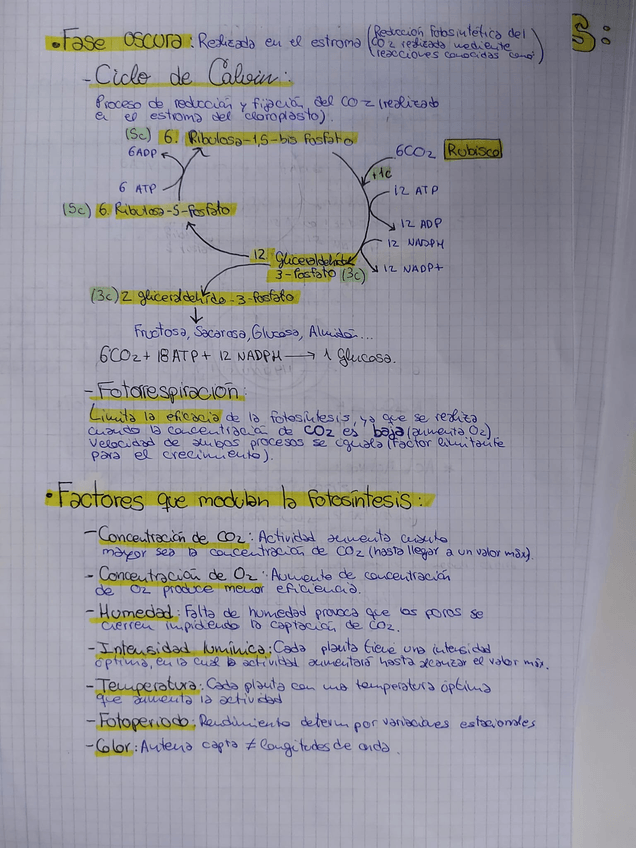 • Fase oscura: Realizada en el estroma (Reducción fotosintética del
CO2 realizada mediente
reacciones conocidas como)
S:
- Ciclo de Calvin:
Proceso de reducción y fijación del CO2 (realizado
en el estroma del cloroplasto).
(5c) 6. Ribulosa-1,5-bis fosfato
6ADP
6CO2 Rubisco
+1c
6 ATP
12 ATP
(5c) 6 Ribulosa-5-fosfato
12 ADP
12 NADPH
12. Gliceraldehido
3-fosfato (3c)
12 NADP+
(3c) 2 gliceraldehído-3-fosfato
Fructosa, Sacarosa, Glucosa, Almidón...
6CO2 + 18 ATP + 12 NADPH → 1 Glucosa.
- Fotorrespiración:
Limita la eficacia de la fotosíntesis, ya que se realiza
cuando la concentración de CO2 es baja (aumenta O2)
Velocidad de ambos procesos se iguala (factor limitante
para el crecimiento).
• Factores que modulan la fotosíntesis:
- Concentración de CO2: Actividad aumenta cuanto
mayor sea la concentración de CO2 (hasta llegar a un valor máx).
- Concentración de O2: Aumento de concentración
de O2 produce menor eficiencia.
- Humedad: Falta de humedad provoca que los poros se
cierren impidiendo la captación de CO2.
- Intensidad lumínica: Cada planta tiene una intensidad
óptima, en la cual la actividad aumentará hasta alcanzar el valor máx.
- Temperatura: Cada planta con una temperatura óptima
que aumenta la actividad
- Fotoperiodo: Rendimiento determ por variaciones estacionales
- Color: Antena capta ≠ longitudes de onda.